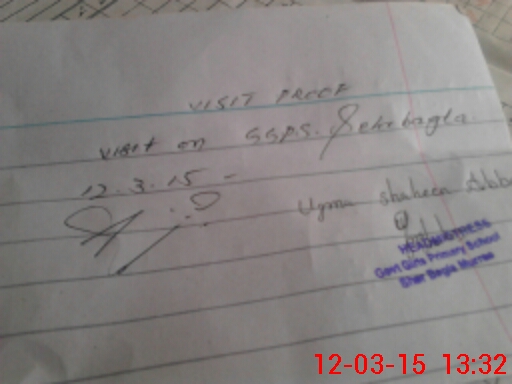 VISIT PROOF
VISIT on GGPS. Seherbagla.
12.3.15 -
Uzma shaheen Abba
HEADMISTRESS
Govt Girls Primary School
Sher Bagla Murree
12-03-15 13:32